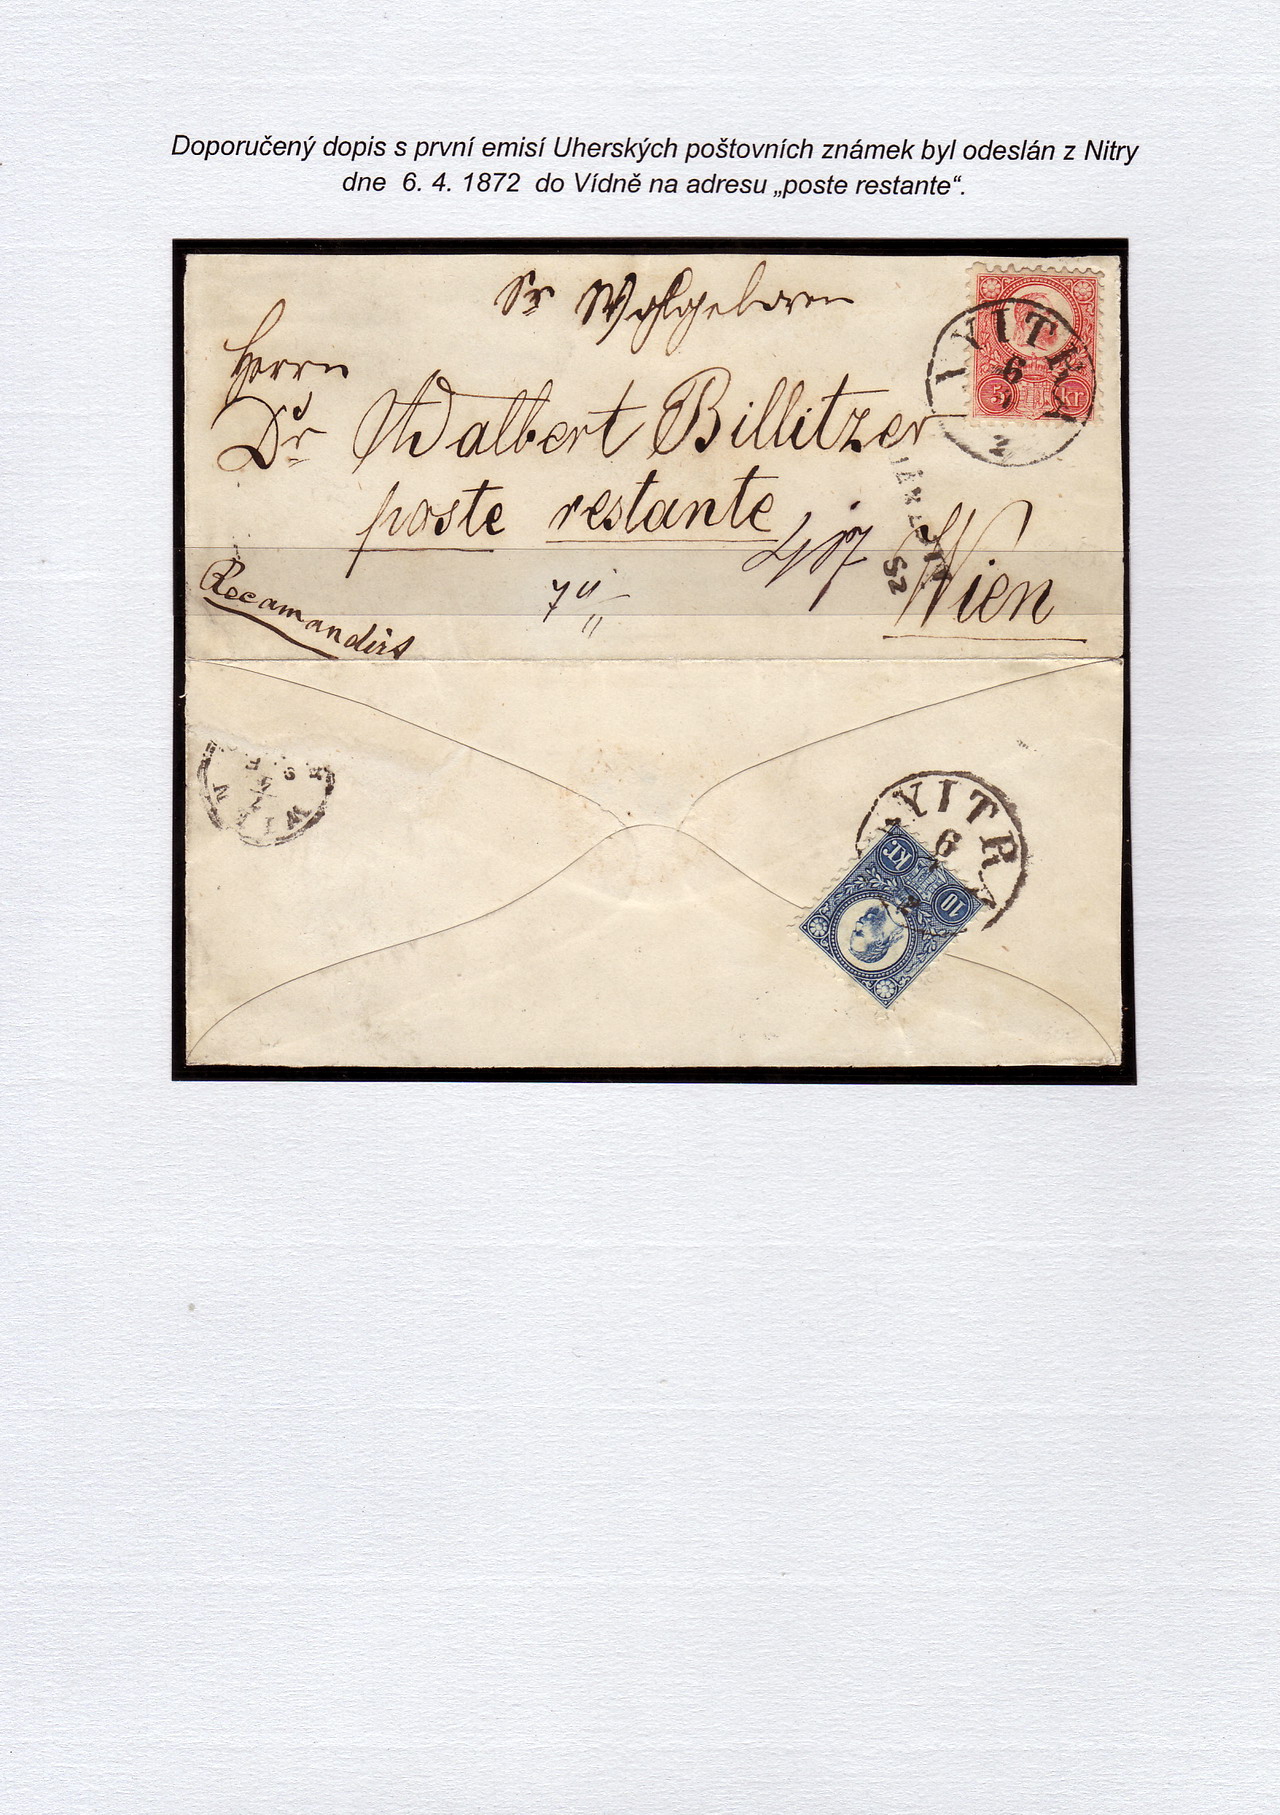 Doporučený dopis s první emisí Uherských poštovních známek byl odeslán z Nitry
dne 6. 4. 1872 do Vídně na adresu „poste restante“.
Sr Wohlgeboren
Herrn
Dr Adalbert Billitzer
poste restante
Wien
Recamandirt
5 kr.
NYITRA
6
2
WIEN
NYITRA
6
10 kr.